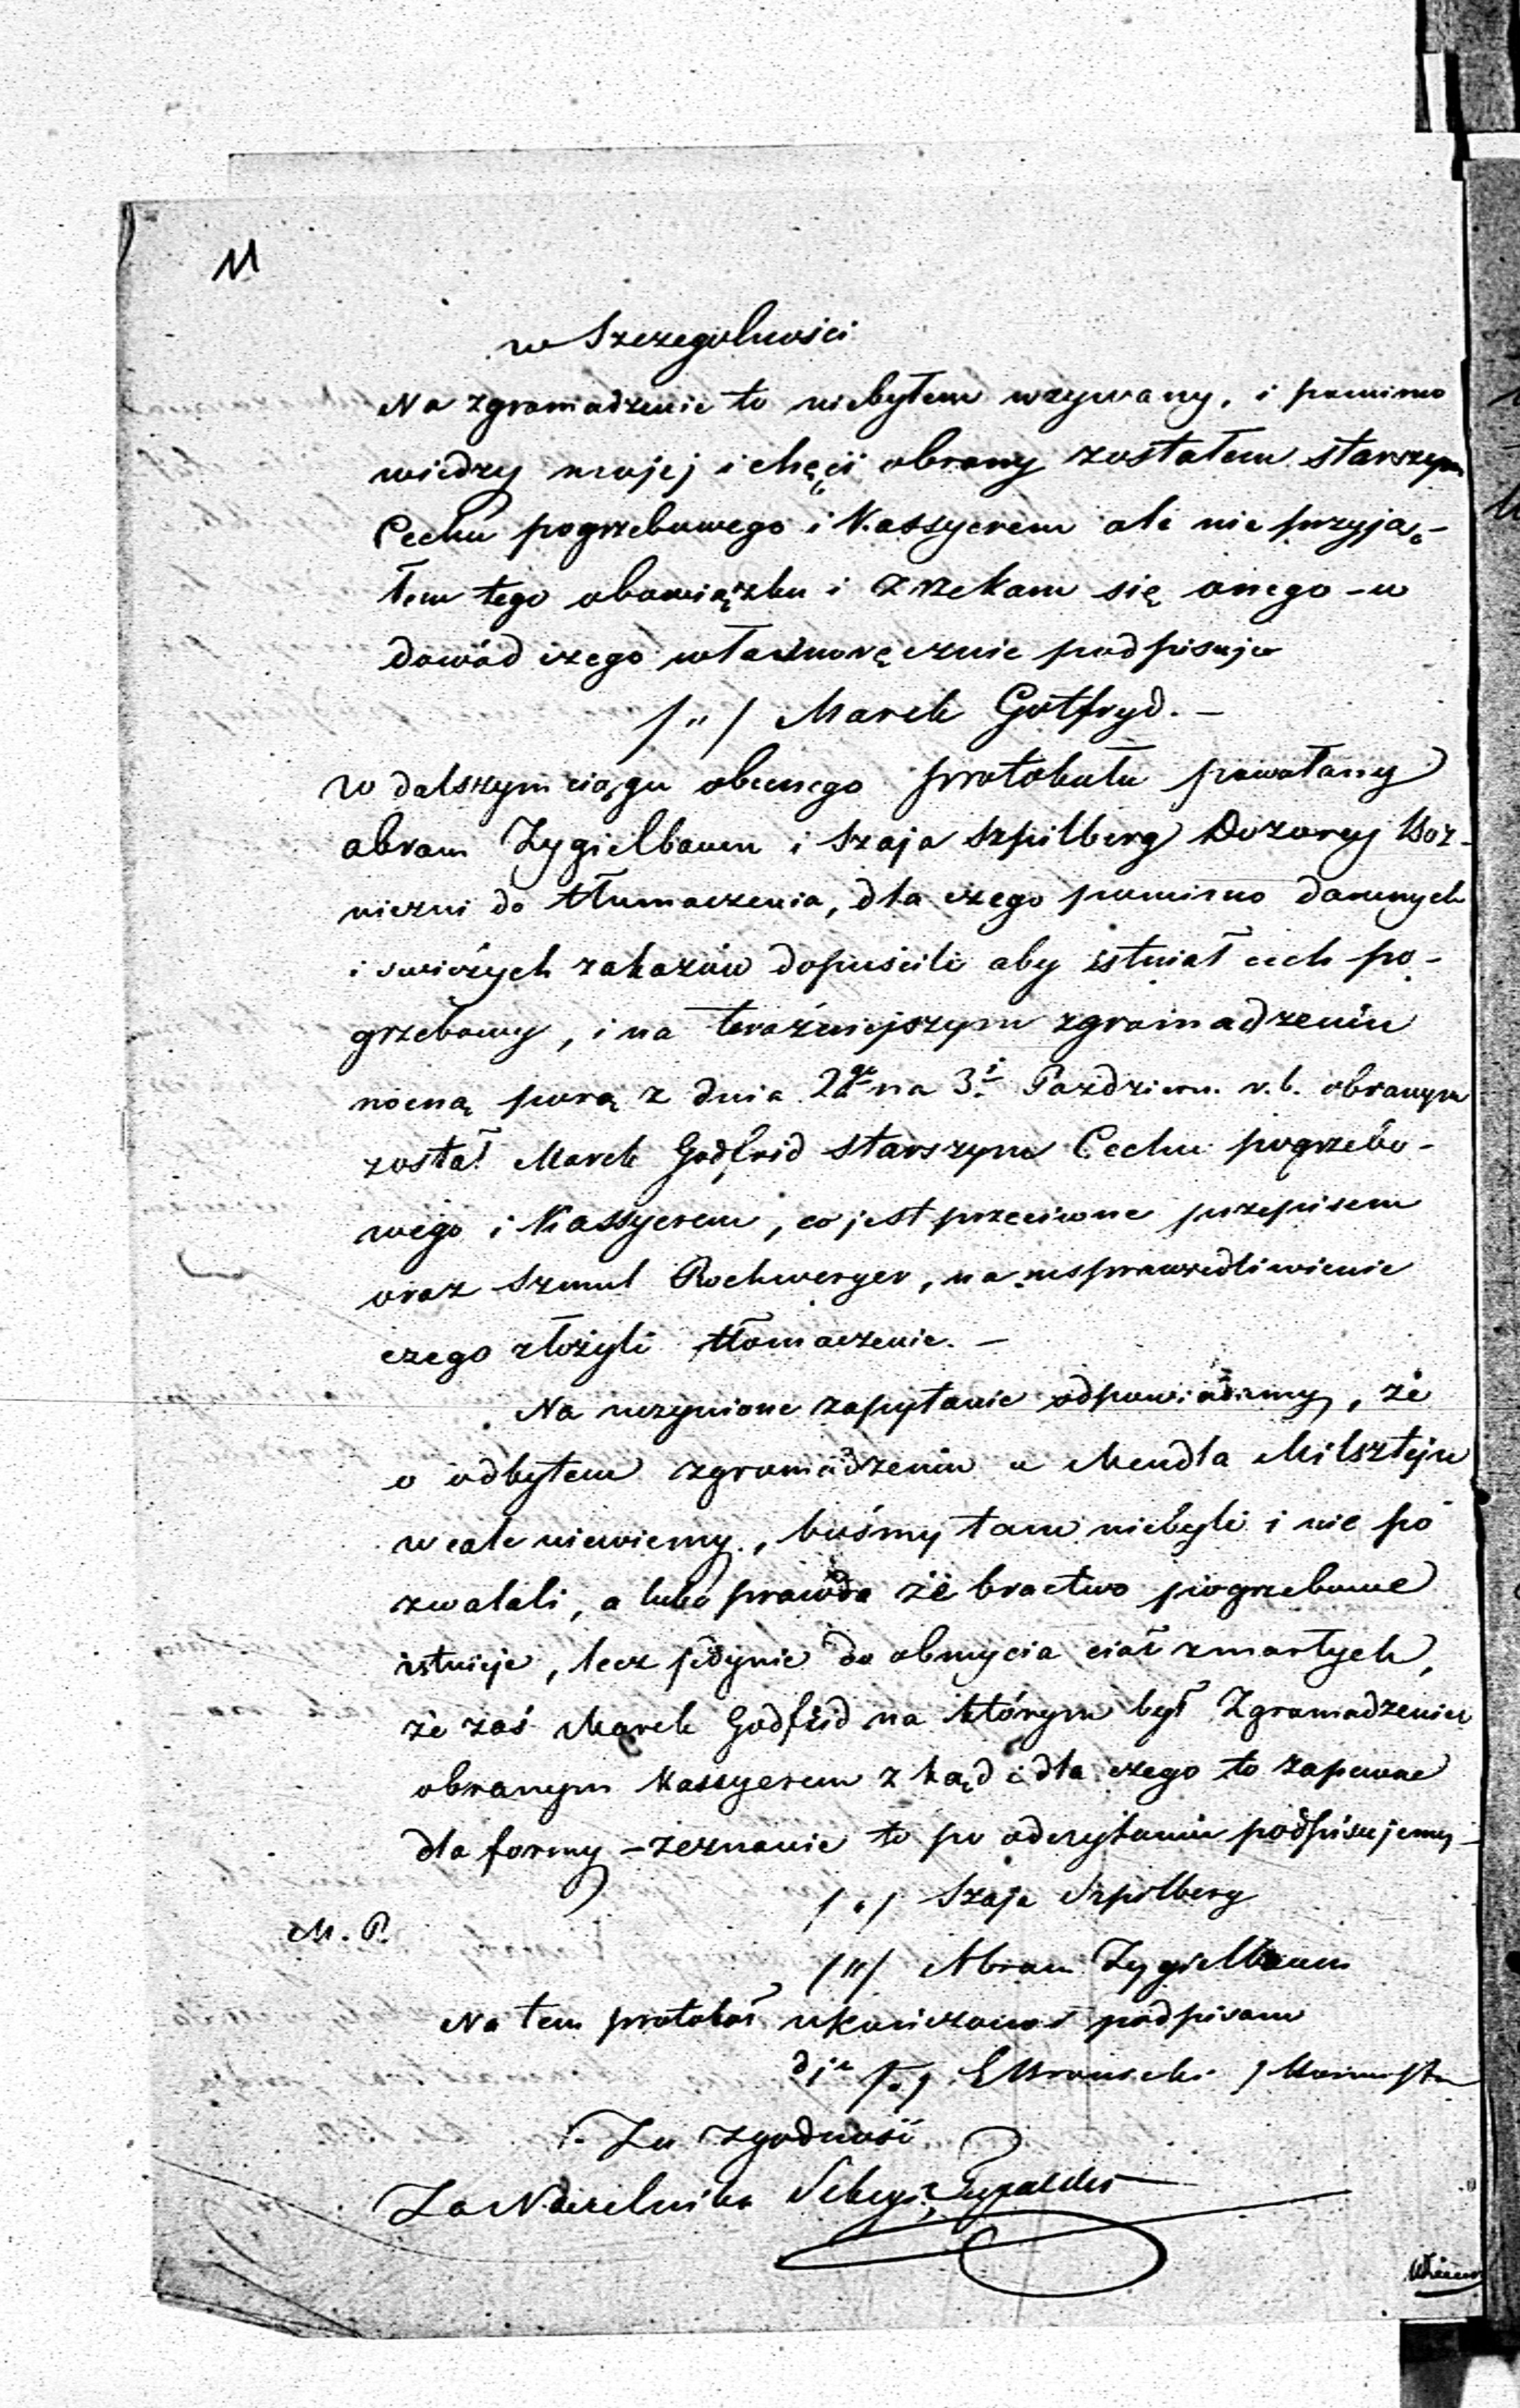 11
w Szczegolności
Na zgromadzenie to niebyłem wzywany, i pomimo
wiedzy mojej i chęci obrany zostałem starszym
Cechu pogrzebowego i Kassyerem ale nie przyją-
łem tego obowiązku i zrzekam się onego – w
dowód czego własnoręcznie podpisuje
/"/ Marek Gotfryd. –
W dalszym ciągu obecnego protokułu powołany
abram Zygielbaum i Szaja Szpilberg Dozorcy Boż-
niczni do tłumaczenia, dla czego pomimo dawnych
i swieżych zakazów dopuścili aby istniał cech po-
grzebowy, i na teraźniejszym zgromadzeniu
nocną porą z dnia 2go na 3i Pazdziern. r. b. obranym
został Marek Godfrid starszym Cechu pogrzebo-
wego i Kassyerem, co jest przeciwne przepisem
oraz Szmul Rochwerger, na usprawiedliwienie
czego złożyli tłomaczenie. –
Na uczynione zapytanie odpowiadamy, że
o odbytem zgromadzeniu u Mendla Milsztejn
wcale niewiemy, bośmy tam niebyli i nie po
zwalali, a lubo prawda że bractwo pogrzebowe
istnieje, lecz jedynie do obmycia ciał zmarłych,
że zaś Marek Godfrid na którym był Zgromadzeniu
obranym Kassyerem z kąd i dla czego to zapewne
dla formy – zeznanie to po odczytaniu podpisujemy –
/"/ Szaja Szpilberg
M. P.
/"/ Abram Zygielbaum
Na tem protokół ukończono i podpisano
/"/
Za zgodność
Za Naczelnika Sekcyi